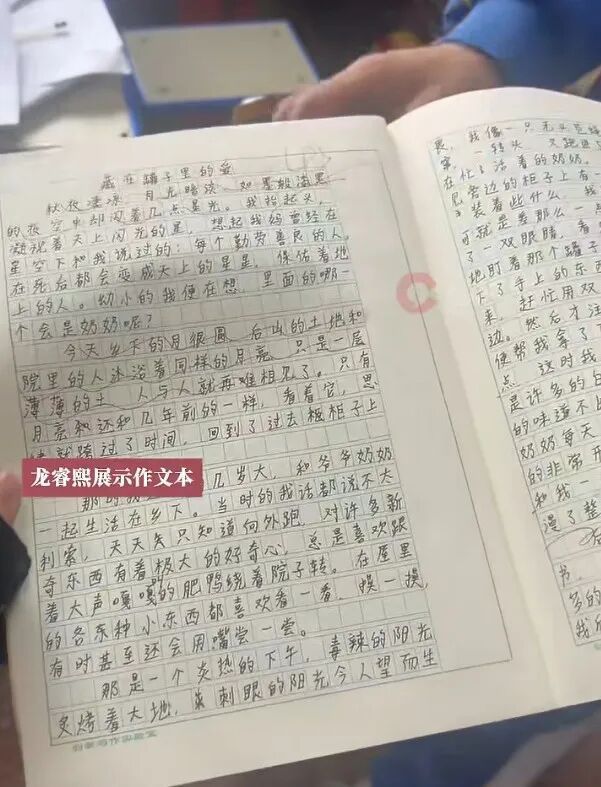 藏在罐子里的爱
秋夜漆凉，月光暗淡，如墨般漆黑
的夜空中却闪着几点星光。我抬起头，
凝视着天上闪光的星，想起我妈曾经在
星空下和我说过的：每个勤劳善良的人，
在死后都会变成天上的星星，保佑着地
上的人。幼小的我便在想，里面的哪一
个会是奶奶呢？
今天乡下的月很圆，后山的土地和
院里的人沐浴着同样的月亮，只是一层
薄薄的土，人与人就再难相见了。只有
月亮和还和几年前的一样，看着它，思
绪就跨过了时间，回到了过去柜子上
龙睿熙展示作文本
那时我 几岁大，和爷爷奶奶
一起生活在乡下。当时的我话都说不大
利索，天天只知道向外跑，对许多新
奇东西有着极大的好奇心，总是喜欢跟
着大声嘎嘎的肥鸭绕着院子转。在屋里
的各东种小东西都喜欢看一看，摸一摸，
有时甚至还会用嘴尝一尝。
那是一个炎热的下午，毒辣的阳光
炙烤着大地，刺眼的阳光令人望而生
畏，我像一只无头苍蝇
一转头，又跑进
在忙活着的奶奶。
旁边的柜子上有一
装着些什么，我
可就是差那么一点
了一双眼睛，看
地盯着那个罐子
下了手上的东西
来，赶忙用双
边。然后才注
便帮我拿了下
点。这时我
是许多的白
的味道不比
奶奶每天
的非常开
和我一
漫了整
书，
多的
我后